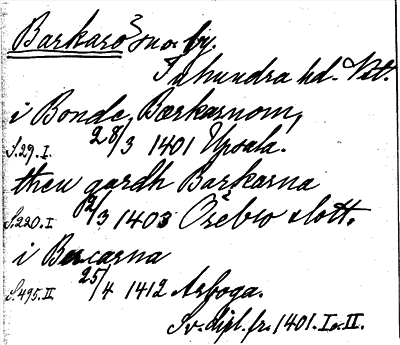 Barkarö sn o. by.
Tuhundra hd. Vstl.
i Bonde, Bærkarnom,
S. 29. I. 28/3 1401 Upsala.
theu gardh Barkarna
S. 220. I 12/3 1403 Örebro slott.
i Bercarna
S. 495. II. 25/4 1412 Arboga.
Sv. dipl. fr. 1401. I o. II.